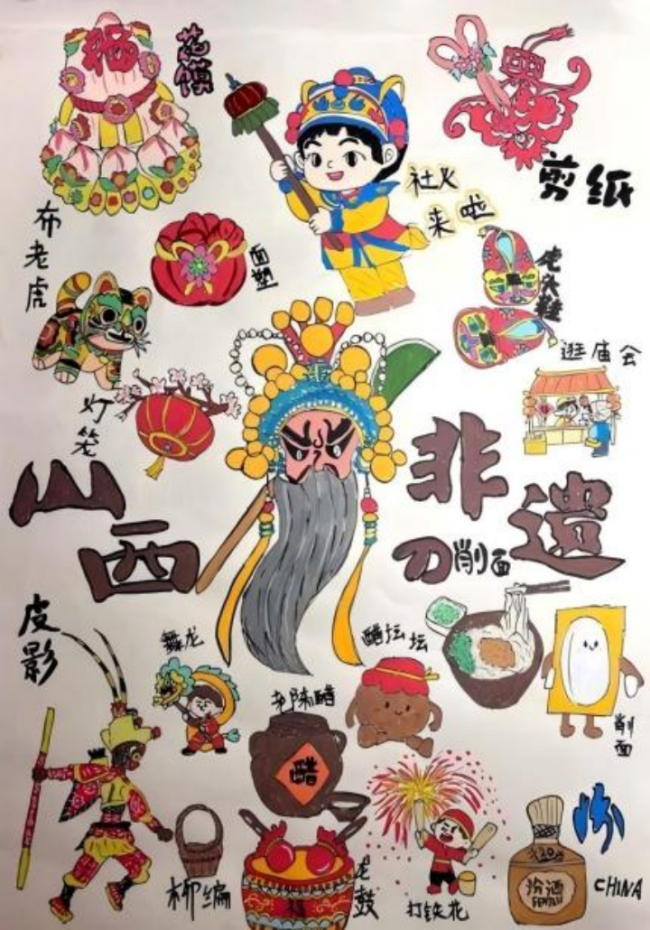 福
花馍
社火
来啦
剪纸
布老虎
面塑
虎头鞋
逛庙会
灯笼
山西
非遗
刀削面
皮影
舞龙
老陈醋
醋坛坛
醋
削面
柳编
老鼓
打铁花
汾
CHINA
汾酒